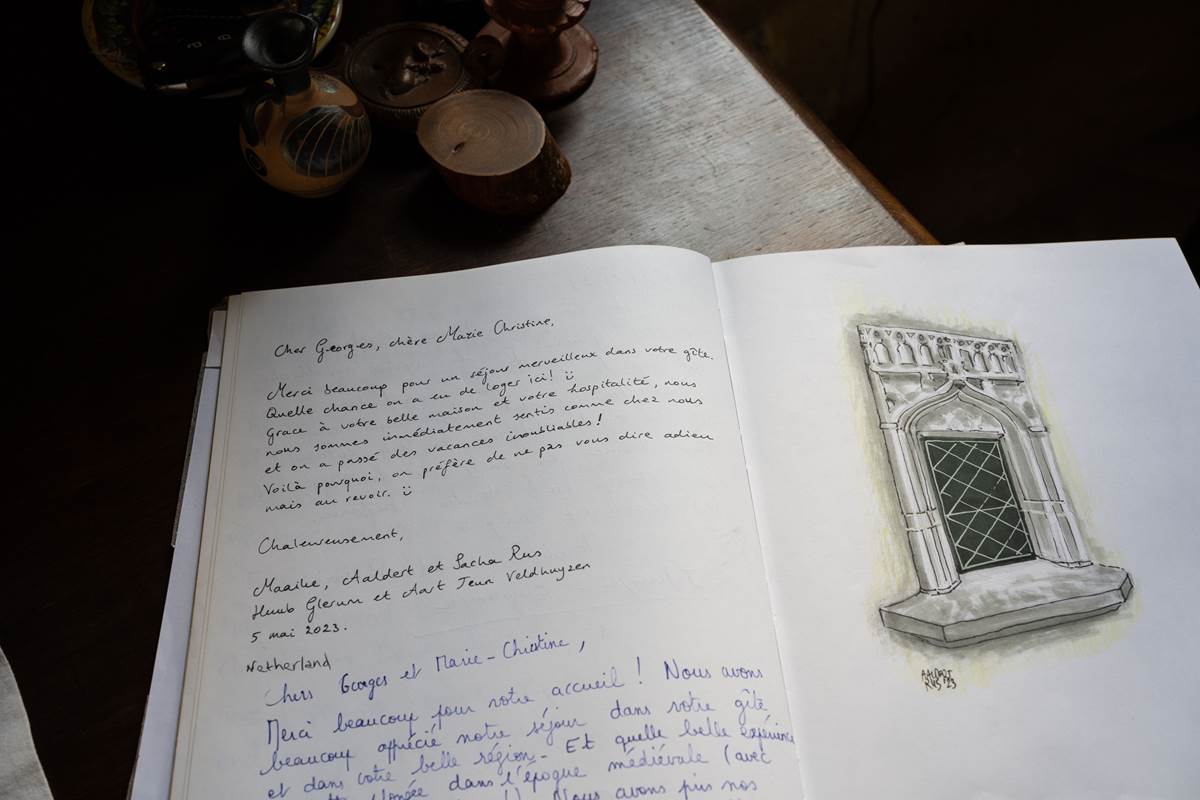 Cher Georges, chère Marie Christine,
Merci beaucoup pour un séjour merveilleux dans votre gîte.
Quelle chance on a eu de loger ici! ü
Grace à votre belle maison et votre hospitalité, nous
nous sommes immédiatement sentis comme chez nous
et on a passé des vacances inoubliables!
Voilà pourquoi, on préfère de ne pas vous dire adieu
mais au revoir. ü
Chaleureusement,
Maaike, Aaldert et Sacha Rus
Huub Glerum et Aart Jeun Veldhuyzen
5 mai 2023.
Netherland
Chers Georges et Marie-Christine,
Merci beaucoup pour votre accueil! Nous avons
beaucoup apprécié notre séjour dans votre gîte
et dans votre belle région. Et quelle belle expérience
plongée dans l'époque médiévale (avec
Nous avons pris nos
AALDERT
RUS '23